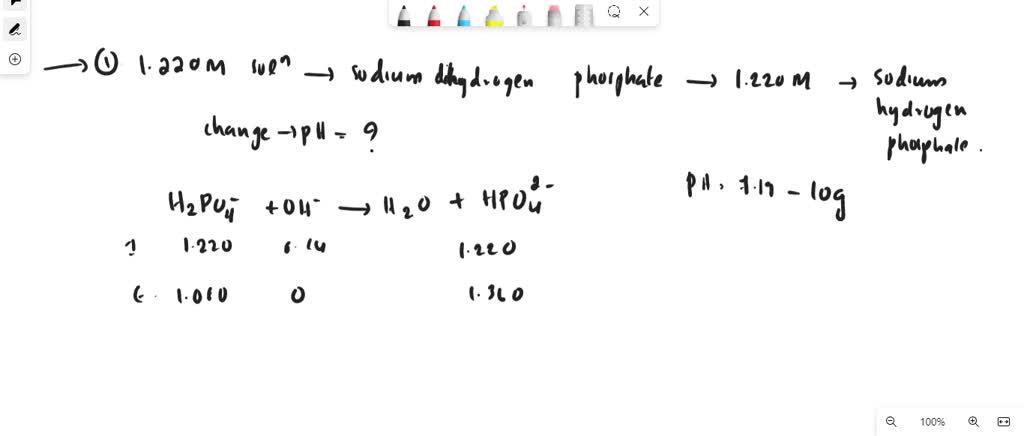 → ① 1.220M solⁿ → sodium dihydrogen phosphate → 1.220 M → sodium
hydrogen
phosphate.
change → pH = ?
pH = 7.19 - log
H₂PO₄⁻ + OH⁻ → H₂O + HPO₄²⁻
1.220 0.14 1.220
1.080 0 1.360
100%